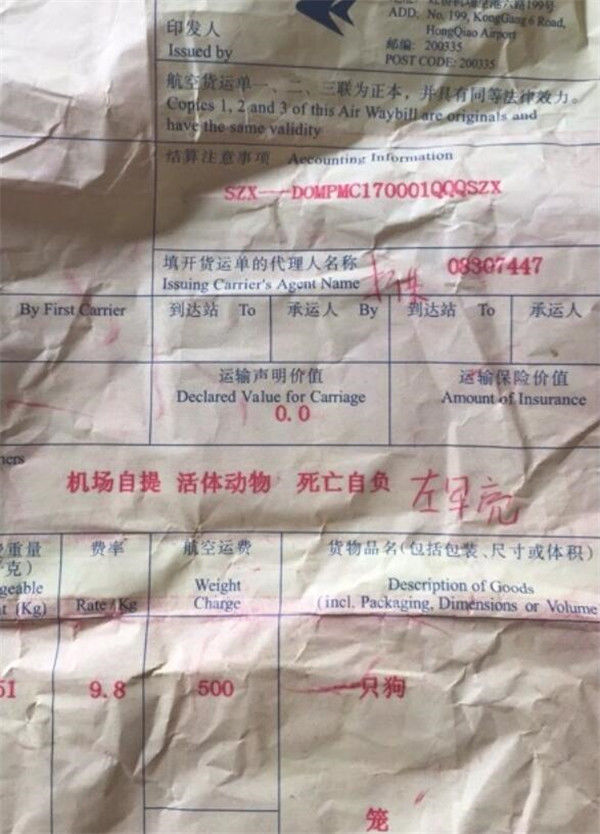 印发人
Issued by
ADD: No. 199, KongGang 6 Road,
HongQiao Airport
邮编: 200335
POST CODE: 200335
航空货运单一、二、三联为正本，并具有同等法律效力。
Copies 1, 2 and 3 of this Air Waybill are originals and
have the same validity
结算注意事项 Accounting Information
SZX——DOMPMC170001QQQSZX
填开货运单的代理人名称
Issuing Carrier's Agent Name
08307447
By First Carrier
到达站 To
承运人 By
到达站 To
承运人
运输声明价值
Declared Value for Carriage
0.0
运输保险价值
Amount of Insurance
机场自提 活体动物 死亡自负
重量
克）
geable
t (Kg)
费率
Rate/Kg
航空运费
Weight
Charge
货物品名(包括包装、尺寸或体积)
Description of Goods
(incl. Packaging, Dimensions or Volume
51
9.8
500
一只狗
笼